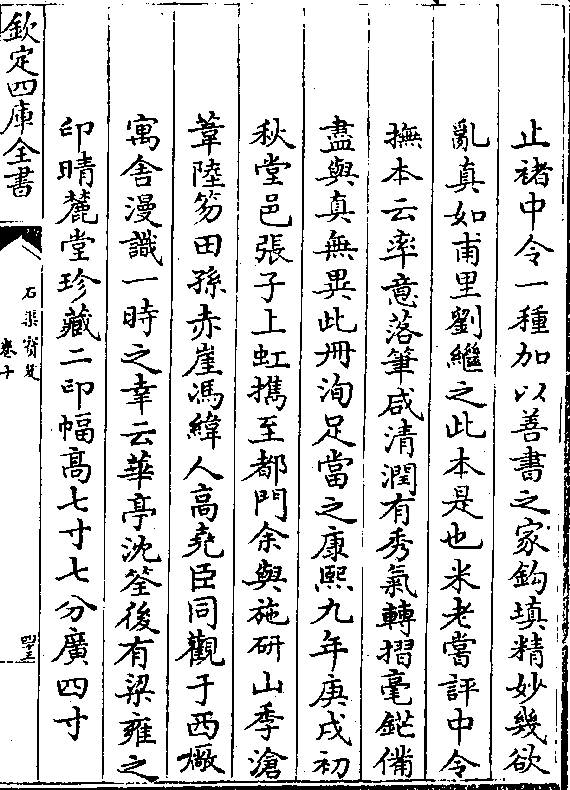 止褚中令一種加以善書之家鈎填精妙幾欲
亂真如甫里劉繼之此本是也米老嘗評中令
撫本云率意落筆咸清潤有秀氣轉摺毫鋩備
盡與真無異此冊洵足當之康熙九年庚戌初
秋堂邑張子上虹攜至都門余與施研山季滄
葦陸芴田孫赤崖馮緯人高堯臣同觀于西墩
寓舍漫識一時之幸云華亭沈筌後有梁雍之
印晴麓堂珍藏二印幅高七寸七分廣四寸
欽定四庫全書
石渠寶笈
卷十